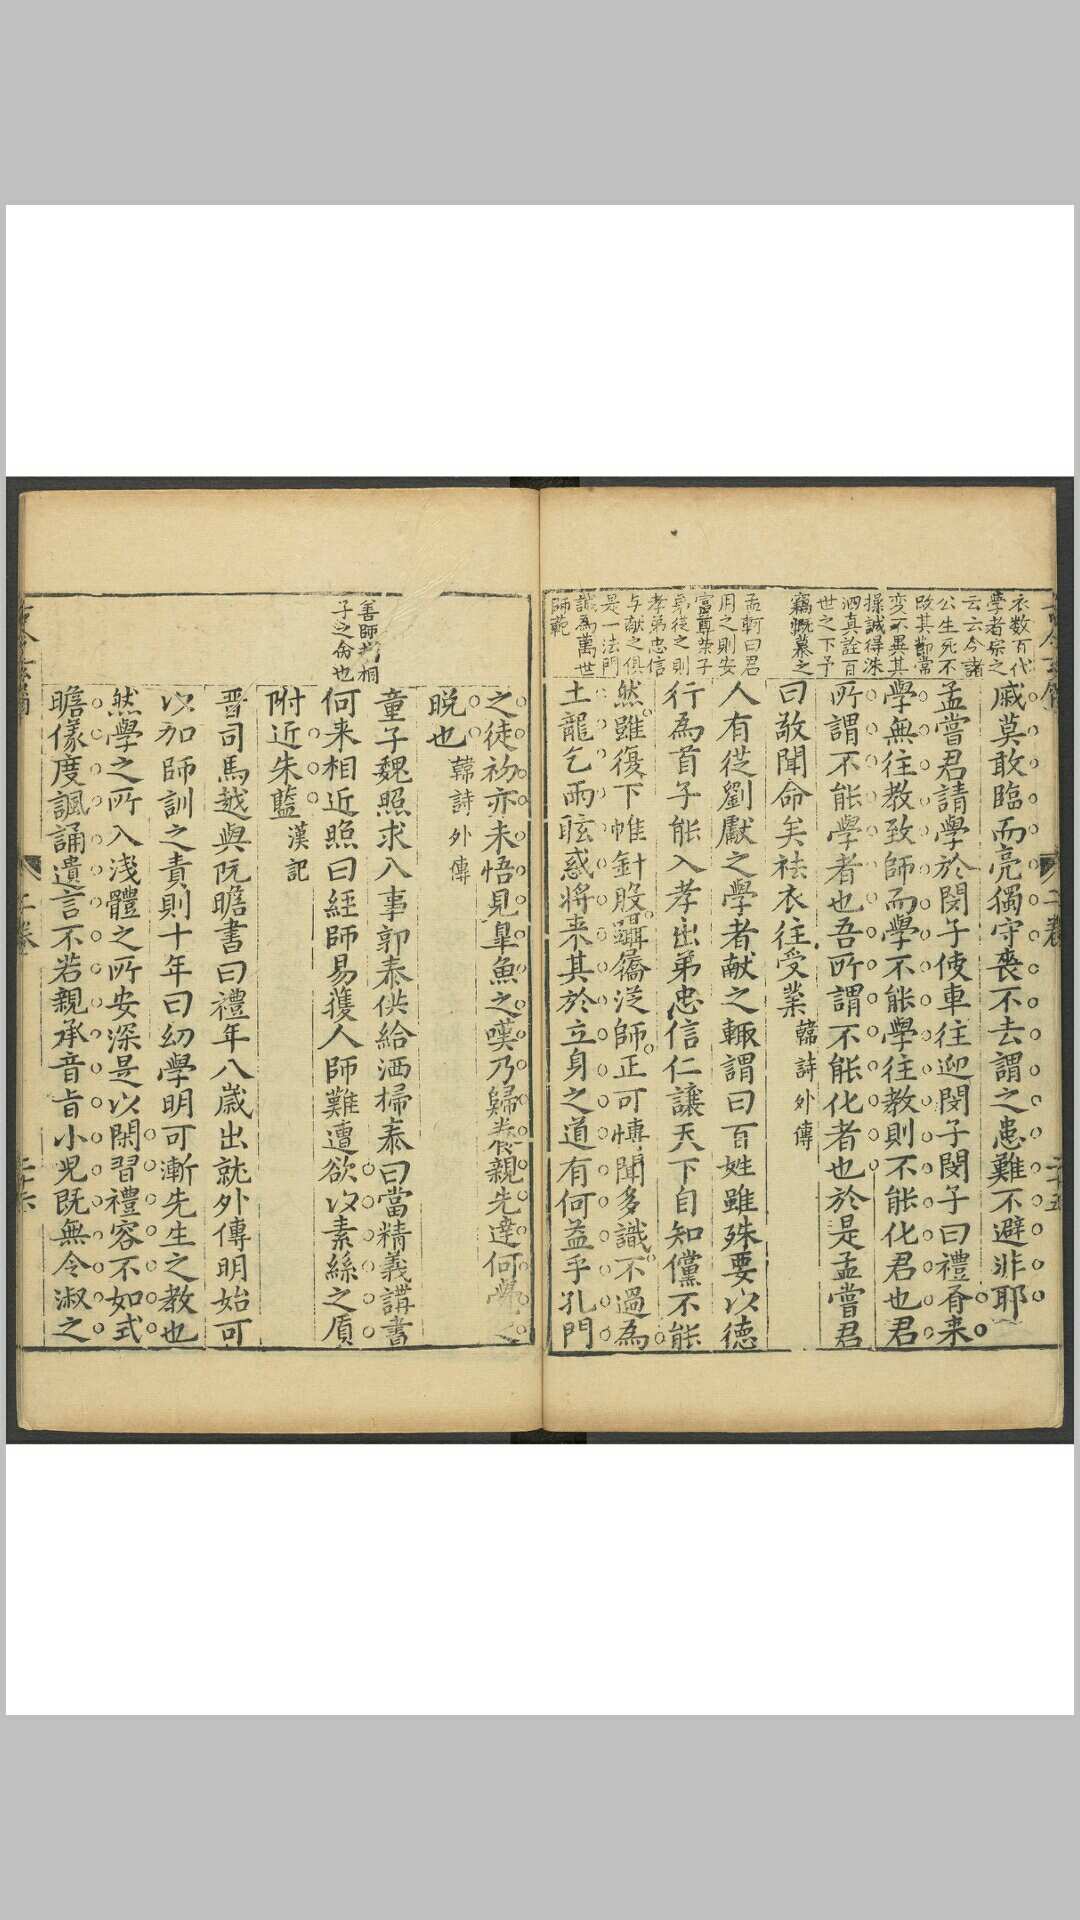 衣数百代
學者宗之
云云今諸
公生死不
改其節常
変不異其
操誠得洙
泗真詮百
世之下予
竊慨慕之
孟軻曰君
用之則安
富尊荣子
弟從之則
孝弟忠信
与献之俱
是一法門
誠為萬世
師範
戚莫敢臨而亮獨守喪不去謂之患難不避非耶
孟嘗君請學於閔子使車往迎閔子閔子曰禮有来
學無往教致師而學不能學往教則不能化君也君
所謂不能學者也吾所謂不能化者也於是孟嘗君
曰敬聞命矣袪衣往受業韓詩外傳
人有從劉獻之學者献之輙謂曰百姓雖殊要以德
行為首子能入孝出弟忠信仁讓天下自知儻不能
然雖復下帷針股躡屩従師正可慱聞多識不過為
土龍乞雨眩惑将来其於立身之道有何益乎孔門
二卷
二十五
善師友相
子之侖也
之徒初亦未悟見臯魚之嘆乃歸養親先達何學之
晚也韓詩外傳
童子魏照求入事郭泰供給洒掃泰曰當精義講書
何来相近照曰經師易獲人師難遭欲以素絲之質
附近朱藍漢記
晋司馬越與阮瞻書曰禮年八歳出就外傅明始可
以加師訓之責則十年曰幼學明可漸先生之教也
然學之所入浅體之所安深是以閑習禮容不如式
瞻儀度諷誦遺言不若親承音旨小児既無令淑之
二卷
二十六